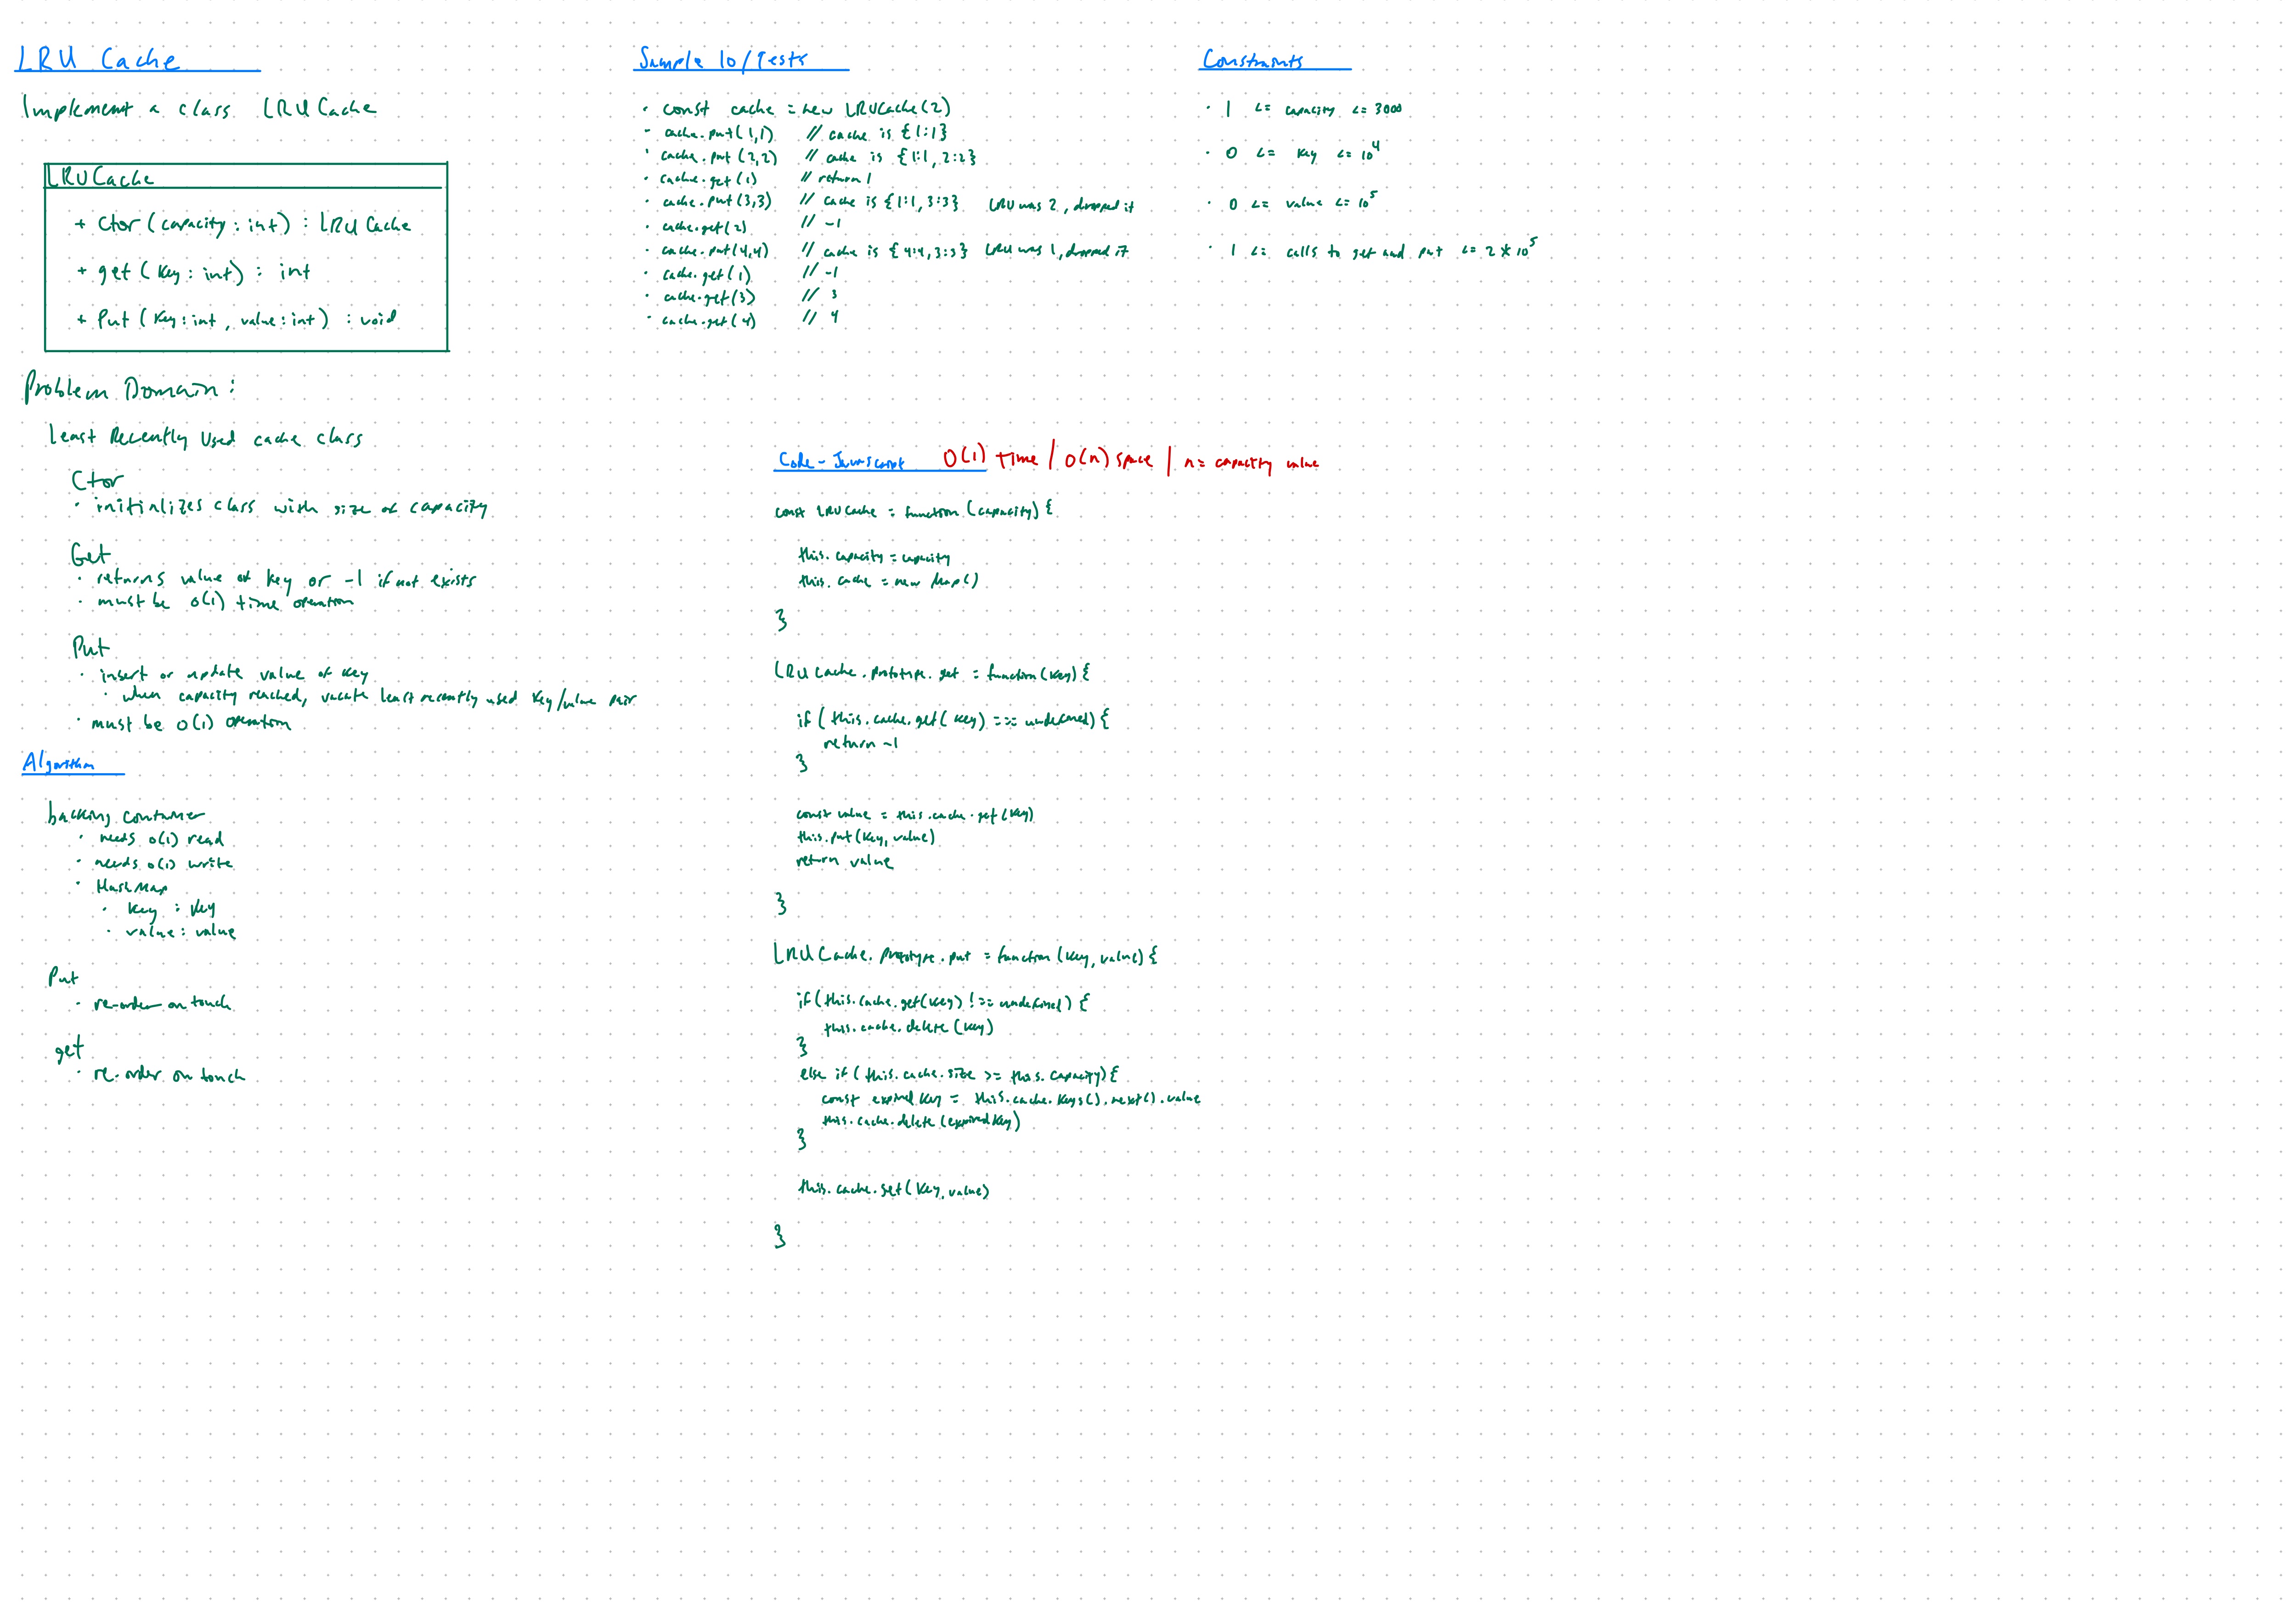 LRU Cache
Implement a class LRU Cache
LRU Cache
+ Ctor (capacity: int) : LRU Cache
+ get (key: int) : int
+ Put (key: int, value: int) : void
Problem Domain:
Least Recently Used cache class
Ctor
· initializes class with size of capacity
Get
· returns value of key or -1 if not exists
· must be O(1) time operation
Put
· insert or update value of key
· when capacity reached, vacate least recently used key/value pair
· must be O(1) operation
Algorithm
backing container
· needs O(1) read
· needs O(1) write
· HashMap
· key : key
· value : value
Put
· re-order on touch
get
· re-order on touch
Sample IO/Tests
· const cache = new LRUCache(2)
· cache.put(1,1) // cache is {1:1}
· cache.put(2,2) // cache is {1:1, 2:2}
· cache.get(1) // return 1
· cache.put(3,3) // cache is {1:1, 3:3} LRU was 2, dropped it
· cache.get(2) // -1
· cache.put(4,4) // cache is {4:4, 3:3} LRU was 1, dropped it
· cache.get(1) // -1
· cache.get(3) // 3
· cache.get(4) // 4
Constraints
· 1 <= capacity <= 3000
· 0 <= key <= 10^4
· 0 <= value <= 10^5
· 1 <= calls to get and put <= 2 * 10^5
Code - Javascript O(1) time | O(n) space | n = capacity value
const LRUCache = function (capacity) {
this.capacity = capacity
this.cache = new Map()
}
LRUCache.prototype.get = function(key) {
if (this.cache.get(key) === undefined) {
return -1
}
const value = this.cache.get(key)
this.put(key, value)
return value
}
LRUCache.prototype.put = function(key, value) {
if (this.cache.get(key) !== undefined) {
this.cache.delete(key)
}
else if (this.cache.size >= this.capacity) {
const expiredKey = this.cache.keys().next().value
this.cache.delete(expiredKey)
}
this.cache.set(key, value)
}